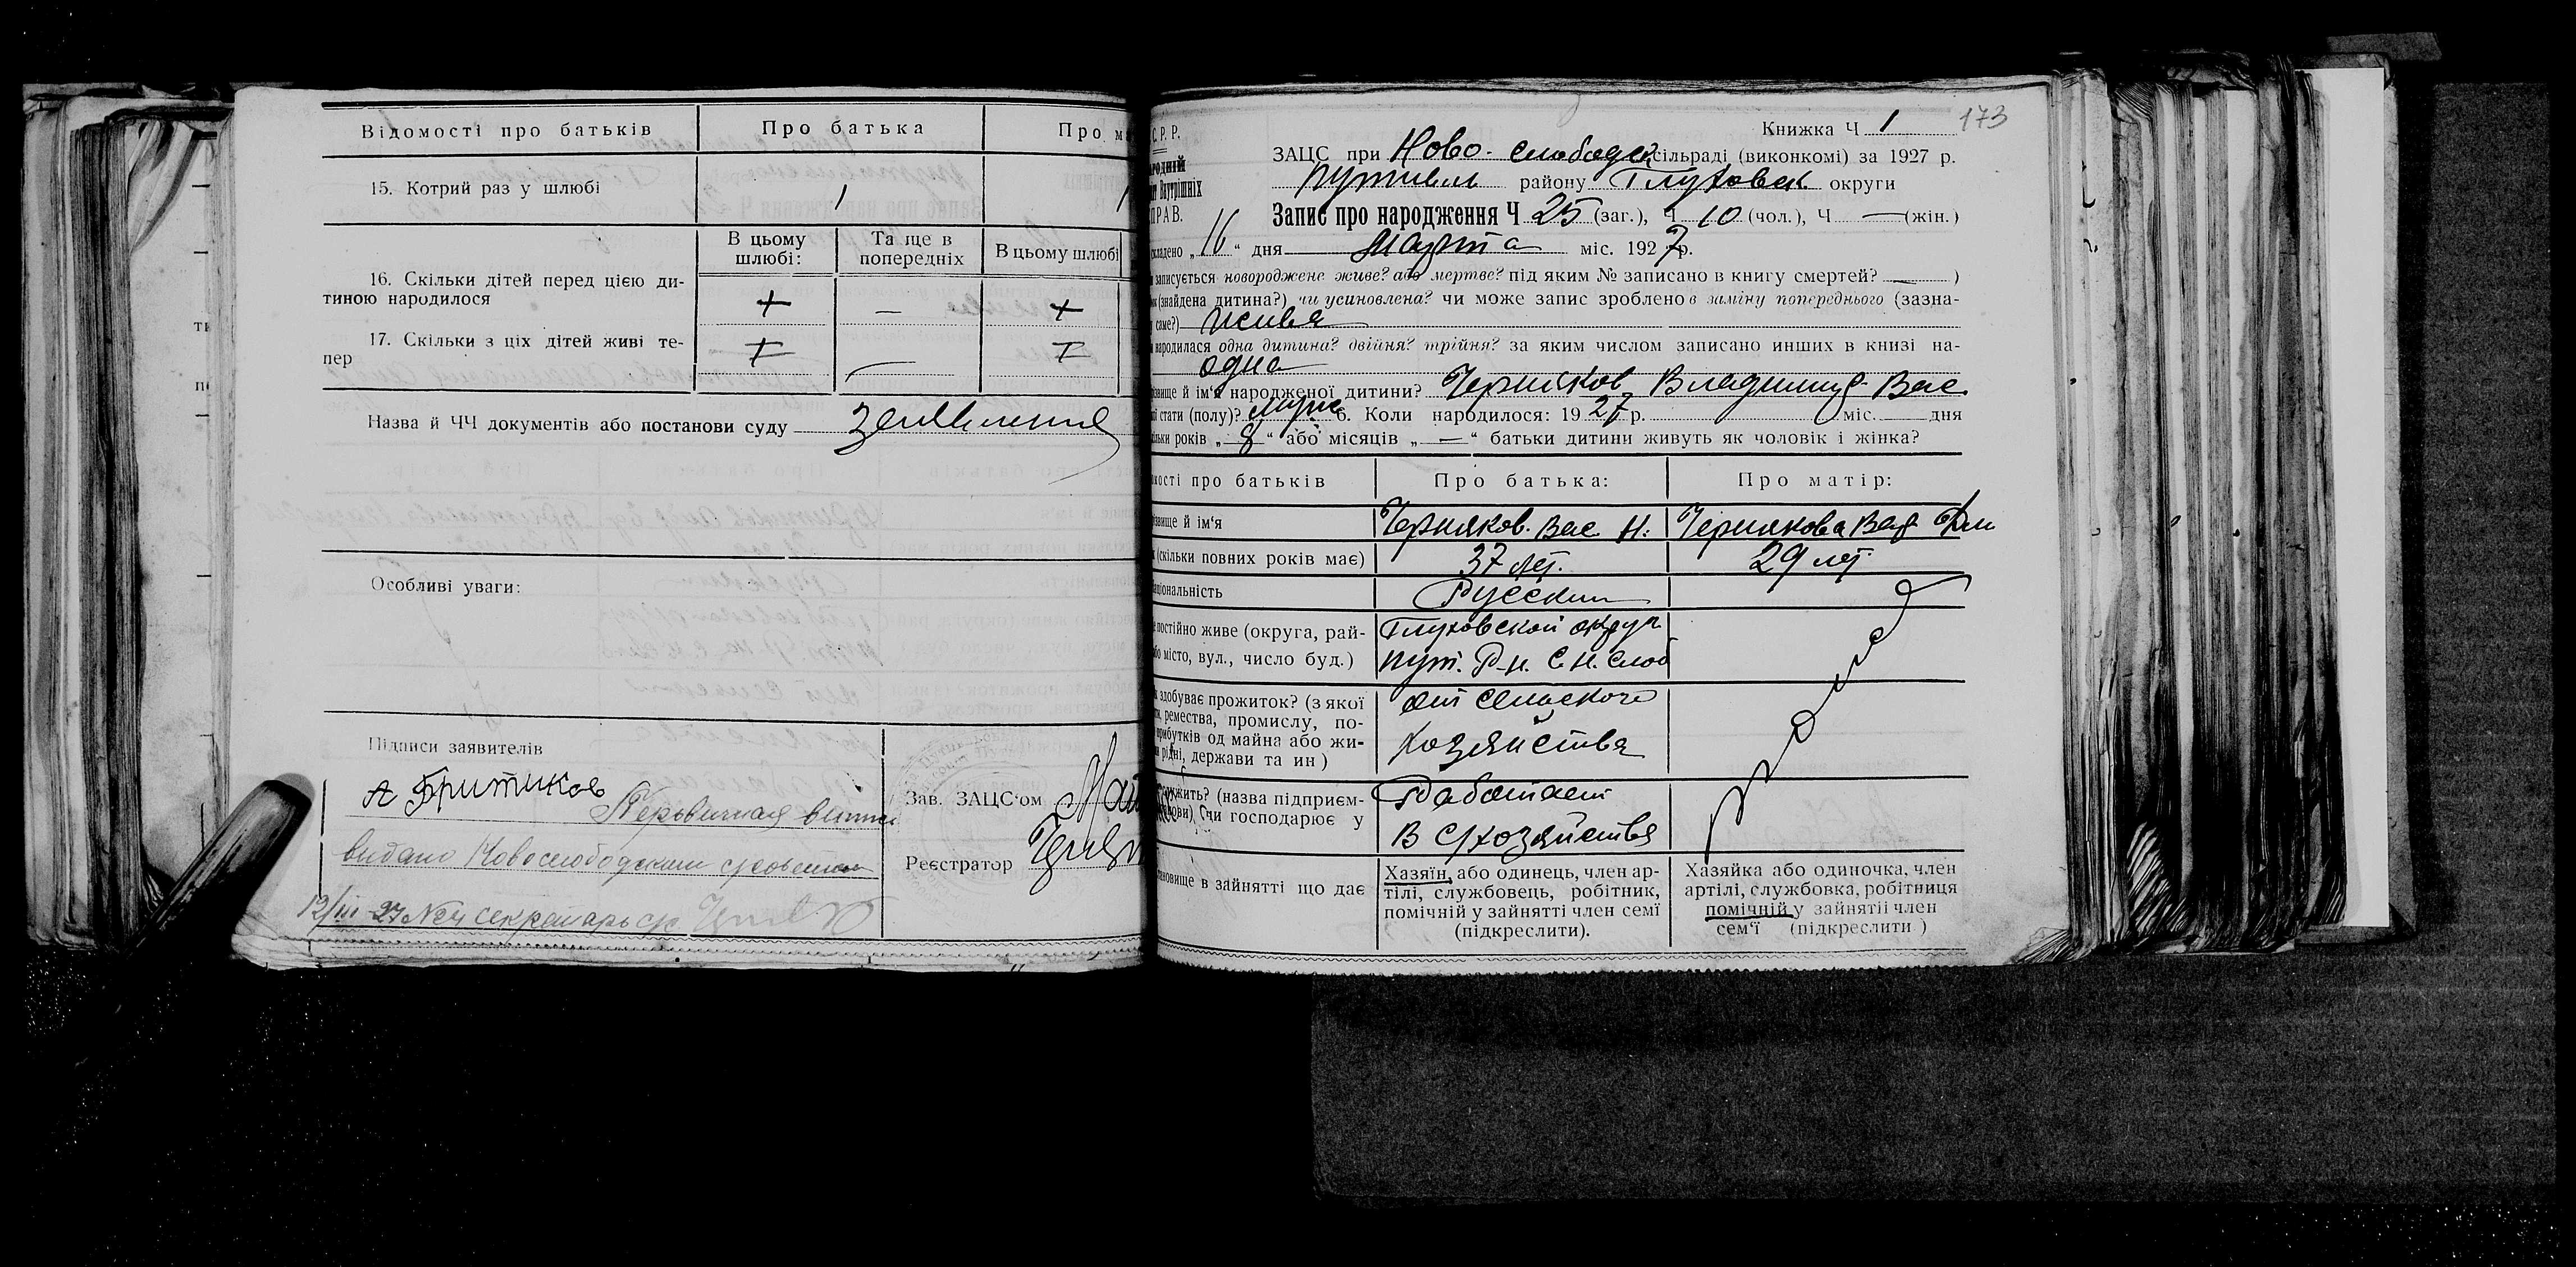 Відомості про батьків
Про батька
Про м
15. Котрий раз у шлюбі
1
1
В цьому шлюбі:
Та ще в попередніх
В цьому шлюбі
16. Скільки дітей перед цією ди-
тиною народилося
+
—
+
17. Скільки з ціх дітей живі те-
пер
—
Назва й ЧЧ документів або постанови суду
Особливі уваги:
Підписи заявителів
А Бритиков
Первичная
видано Новослободским
12/III-27 № секретарь
Зав. ЗАЦС'ом
Реєстратор
173
С. Р. Р.
Книжка Ч 1
ЗАЦС при Ново-слободск сільраді (виконкомі) за 1927 р.
Путивль району Глуховск округи
ПРАВ.
Запис про народження Ч 25 (заг.), Ч 10 (чол.), Ч — (жін.)
кладено „16“ дня марта міс. 1927 р.
записується новороджене живе? або мертве? під яким № записано в книгу смертей? — )
(знайдена дитина?) чи усиновлена? чи може запис зроблено в заміну попереднього (зазна-
саме?) живе
народилася одна дитина? двійня? трійня? за яким числом записано инших в книзі на-
одна
вище й ім'я народженої дитини? Черняков Владимир Вас
стати (полу)? 6. Коли народилося: 1927 р. міс. дня
років „8“ або місяців „—“ батьки дитини живуть як чоловік і жінка?
про батьків
Про батька:
Про матір:
вище й ім'я
Черняков. Вас. Н.
Чернякова
(скільки повних років має)
37 лет.
29 лет
ціональність
Русский
постійно живе (округа, рай-
місто, вул., число буд.)
Глуховской округ
Пут. Р-н. С. Н. Слоб
здобуває прожиток? (з якої
ремества, промислу, по-
рибутків од майна або жи-
рідні, держави та ин)
от сельского
хозяйства
(назва підприєм-
чи господарює у
Работает
в с/хозяйстве
в зайнятті що дає
Хазяїн, або одинець, член ар-
тілі, службовець, робітник,
помічній у зайнятті член семї
(підкреслити).
Хазяйка або одиночка, член
артілі, службовка, робітниця
помічній у зайнятіі член
сем'ї (підкреслити)